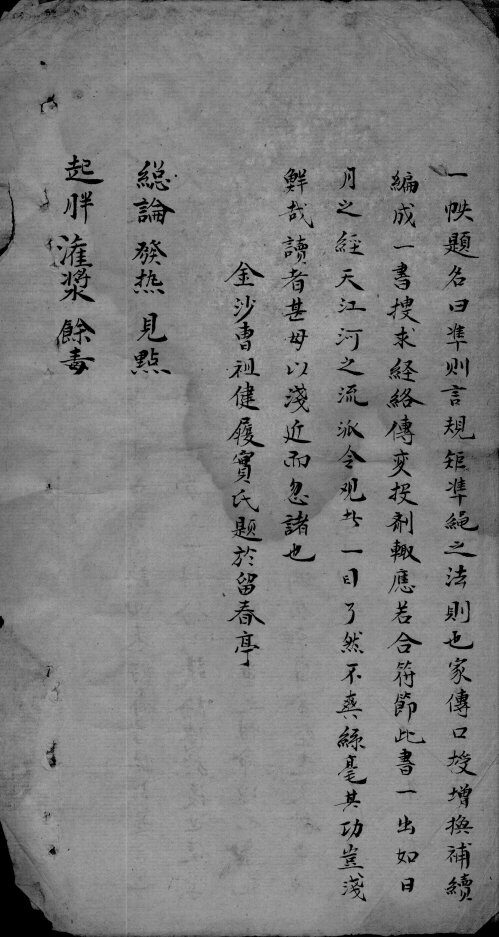 一帙題名曰準則言規矩準繩之法則也家傳口授增換補續
編成一書搜求経絡傳変投剤輙應若合符節此書一出如日
月之經天江河之流派令观者一目了然不爽絲毫其功豈淺
鮮哉讀者甚毋以淺近而忽諸也
金沙曹祖健履實氏題於留春亭
総論 發热 見點
起胖 灌漿 餘毒